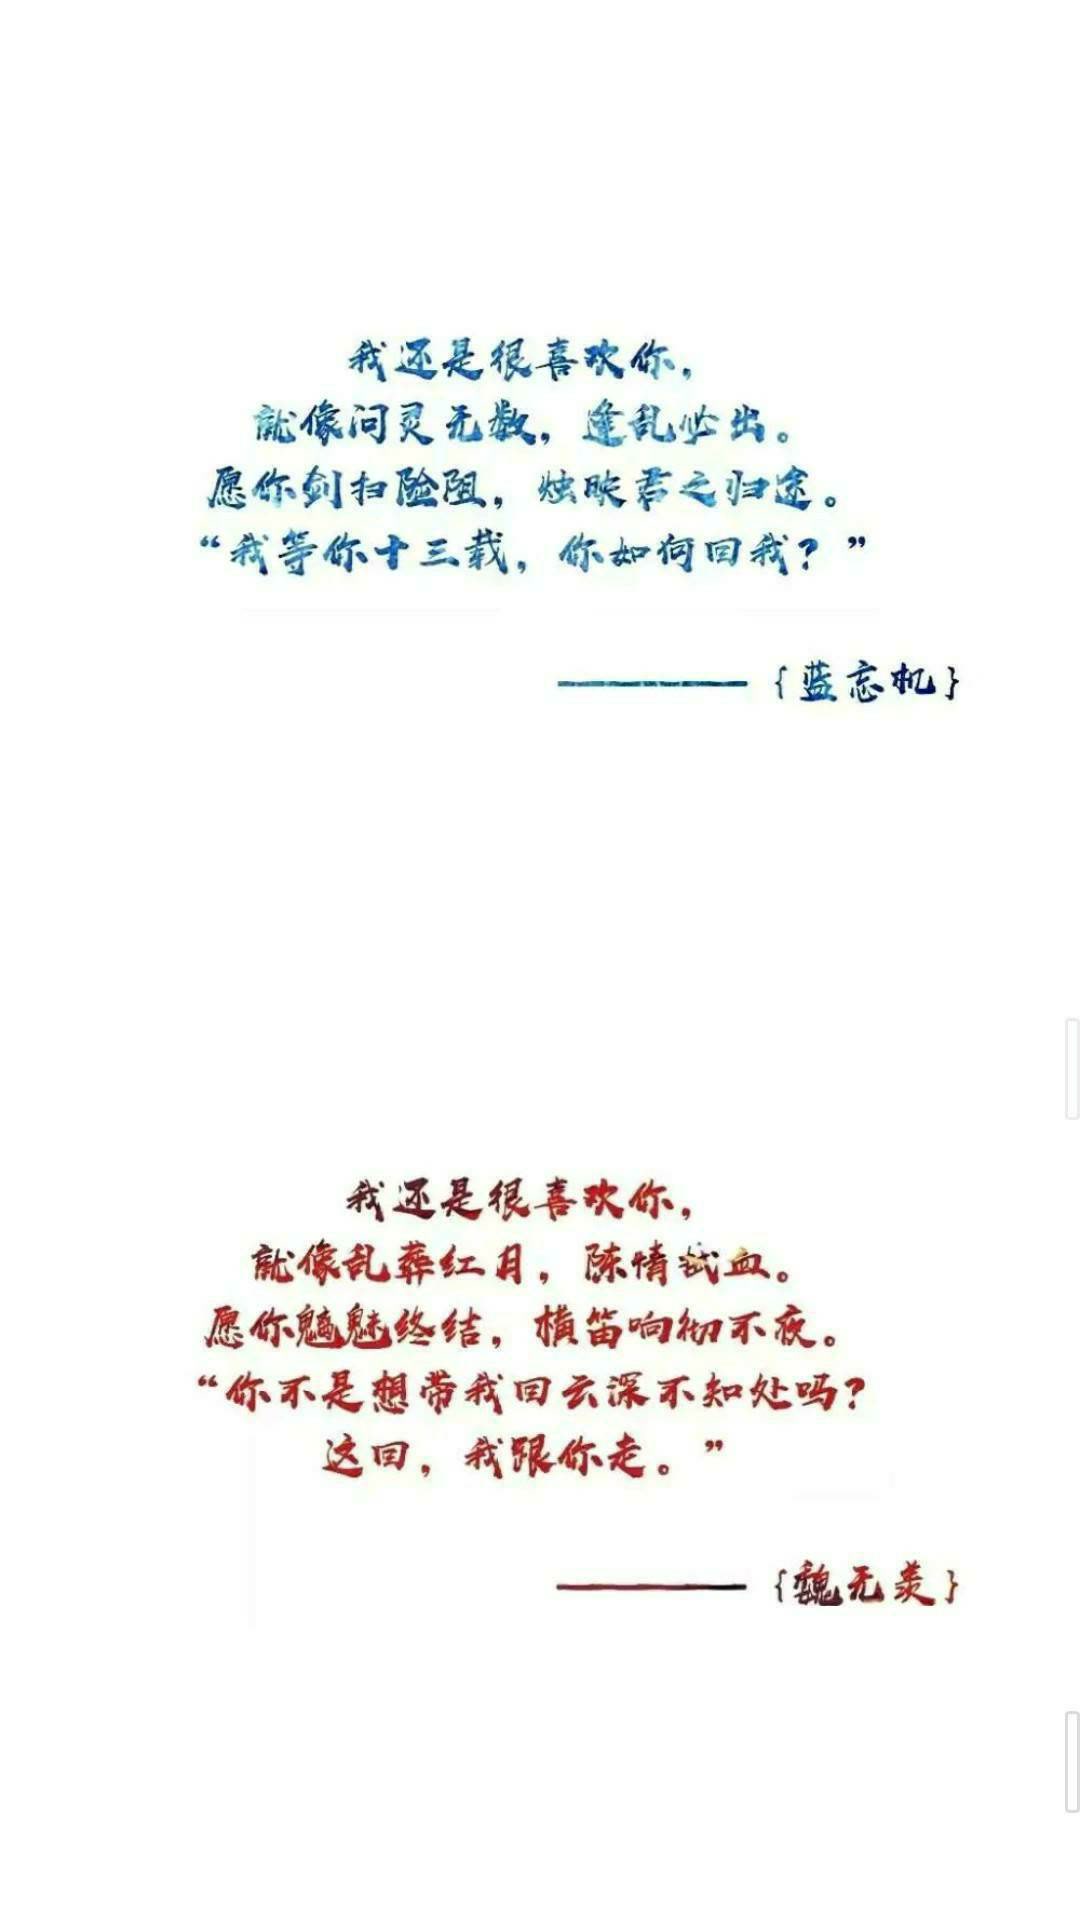 我还是很喜欢你，
就像问灵无数，逢乱必出。
愿你剑扫险阻，烛映君之归途。
“我等你十三载，你如何回我？”
———— {蓝忘机}
我还是很喜欢你，
就像乱葬红月，陈情拭血。
愿你魑魅终结，横笛响彻不夜。
“你不是想带我回云深不知处吗？
这回，我跟你走。”
———— {魏无羡}